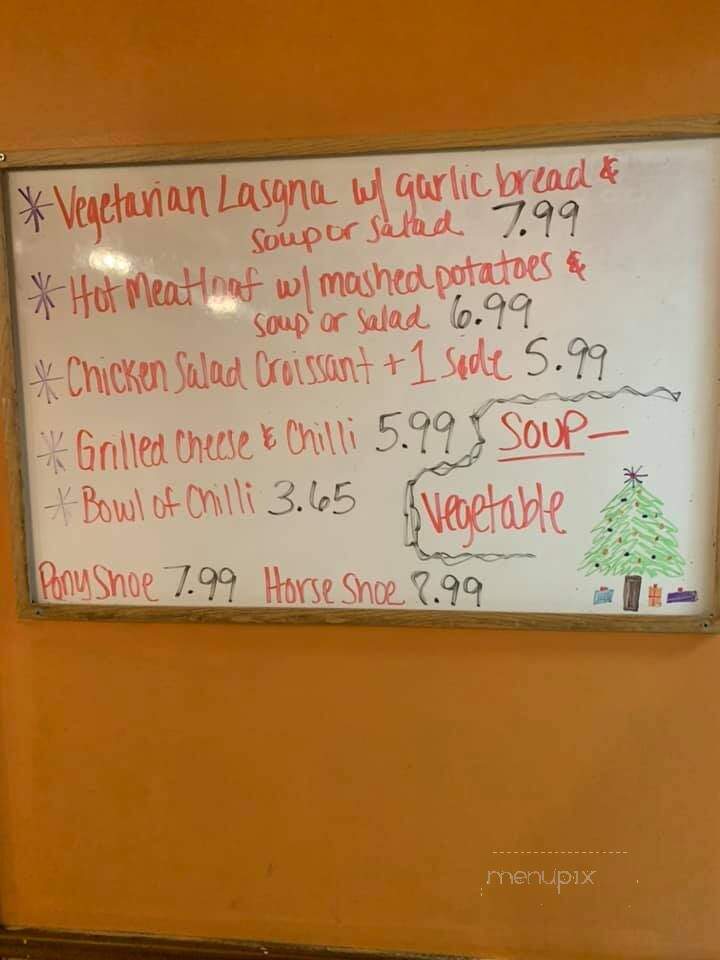 * Vegetarian Lasgna w/ garlic bread &
soup or salad 7.99
* Hot Meatloaf w/ mashed potatoes &
soup or salad 6.99
* Chicken Salad Croissant + 1 side 5.99
* Grilled Cheese & Chilli 5.99
SOUP—
* Bowl of Chilli 3.65
Vegetable
Pony Shoe 7.99 Horse Shoe .99
menupix